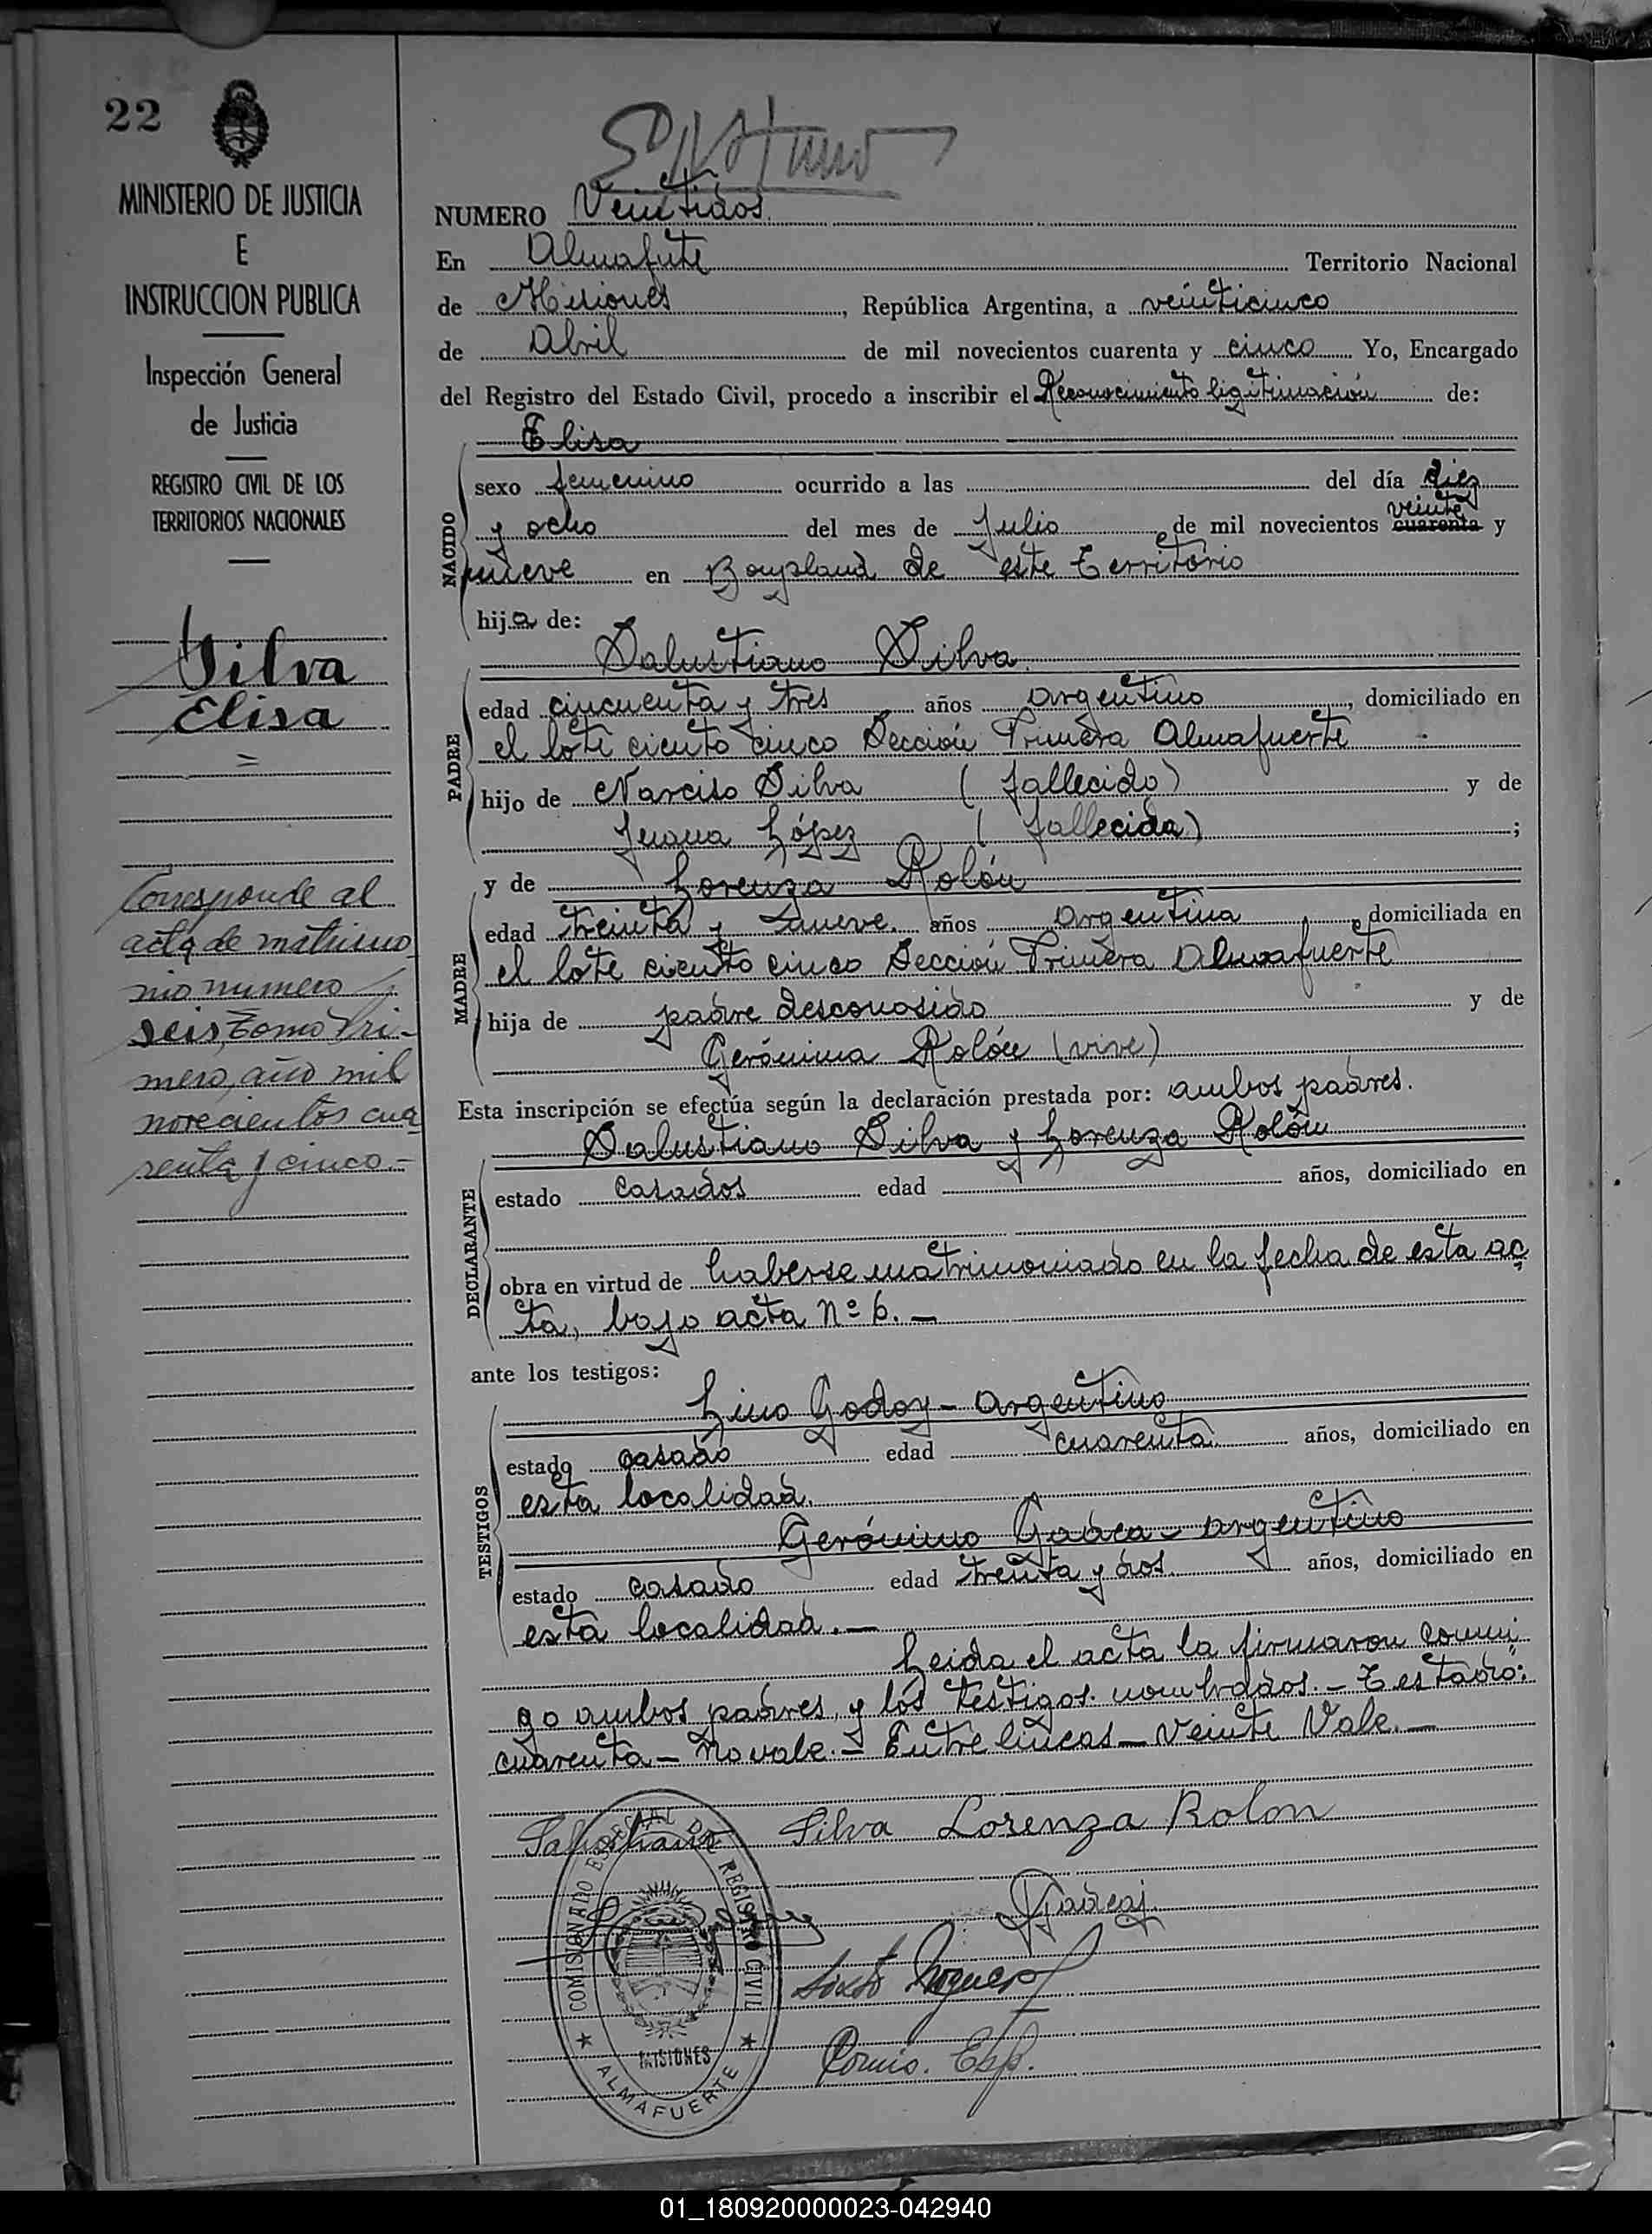 22
MINISTERIO DE JUSTICIA
E
INSTRUCCION PUBLICA
Inspección General
de Justicia
REGISTRO CIVIL DE LOS
TERRITORIOS NACIONALES
Silva
Elisa
=
Corresponde al
acta de matrimo
nio numero
seis, Tomo Pri-
mero, año mil
novecientos cua
renta y cinco.-
NUMERO Veintidos.
En Almafute Territorio Nacional
de Misiones, República Argentina, a veinticinco
de Abril de mil novecientos cuarenta y cinco Yo, Encargado
del Registro del Estado Civil, procedo a inscribir el Reconocimiento ligitimación de:
NACIDO
Elisa
sexo femenino ocurrido a las del día diez
veinte
y ocho del mes de Julio de mil novecientos cuarenta y
nueve en Bonpland de este Territorio
hija de:
PADRE
Salustiano Silva.
edad cincuenta y tres años argentino, domiciliado en
el lote ciento cinco Sección Primera Almafuerte
hijo de Narciso Silva ( fallecido) y de
Juana López ( fallecida) ;
y de Lorenza Rolón
MADRE
edad treinta y nueve. años argentina, domiciliada en
el lote ciento cinco Sección Primera Almafuerte
hija de padre desconosido y de
Gerónima Rolón (vive)
Esta inscripción se efectúa según la declaración prestada por: ambos padres.
DECLARANTE
Salustiano Silva y Lorenza Rolón
estado casados edad años, domiciliado en
obra en virtud de haberse matrimoniado en la fecha de esta ac
ta, bajo acta Nº 6. —
ante los testigos:
TESTIGOS
Lino Godoy - argentino
estado casado edad cuarenta. años, domiciliado en
esta localidad.
Gerónimo Gadea - argentino
estado casado edad treinta y dos. años, domiciliado en
esta localidad. —
Leida el acta la firmaron conmi
go ambos padres, y los testigos nombrados. - Testado:
cuarenta - No vale. - Entre lineas - Veinte Vale. —
Salustiano Silva Lorenza Rolon
Gadea
Comis. Esp.
COMISIONADO ESPECIAL DEL REGISTRO CIVIL
MISIONES
ALMAFUERTE
01_180920000023-042940